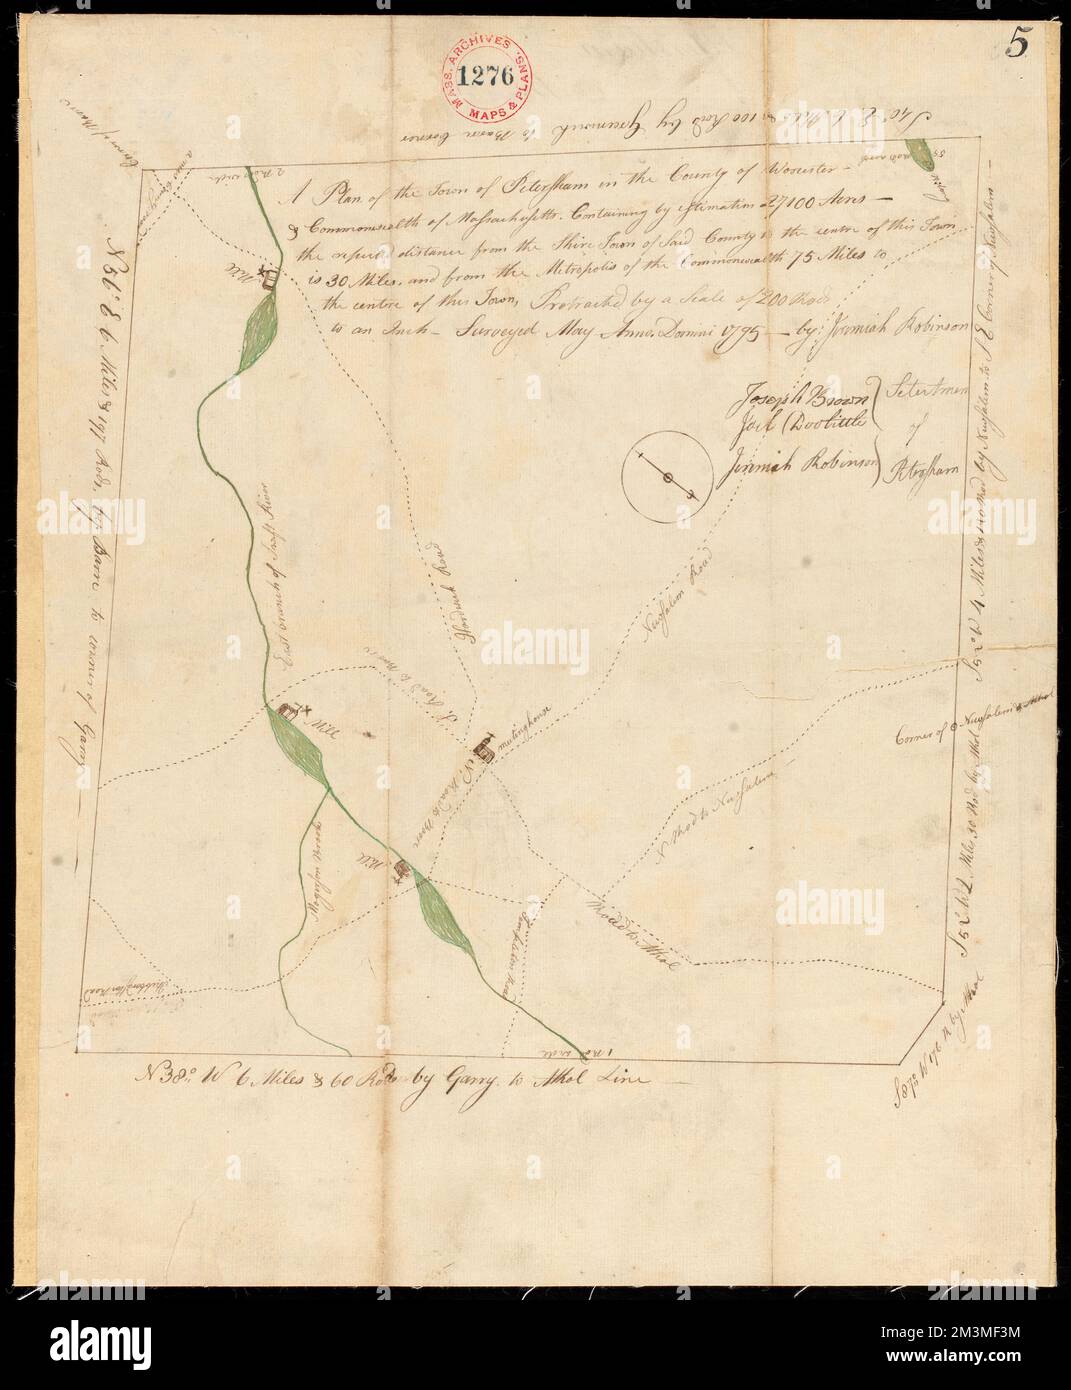 5
MASS. ARCHIVES
1276
MAPS & PLANS.
S 40° E 6 Miles & 100 Rod by Greenwich to Barre Corner
2 Rods wide
A Plan of the Town of Petersham in the County of Worcester —
& Commonwealth of Massachusetts. Containing by estimation 27100 Acres —
the reputed distance from the Shire Town of Said County to the centre of this Town
is 30 Miles, and from the Metropolis of the Commonwealth 75 Miles to
the centre of this Town, Protracted by a Scale of 200 Rods
to an Inch — Surveyed May Anno Domini 1795 — by Jeremiah Robinson
Joseph Brown
Joel Doolittle
Jeremiah Robinson
Selectmen
of
Petersham
Mill
N 56° E 6 Miles & 197 Rods, by Barre to corner of Garry
East branch of Swift River
Hardwick Road
Newsalem Road
S 52° W 4 Miles & 140 Rod by Newsalem to S E Corner of Newsalem —
S. Road to Barre
meetinghouse
Mill
Corner of Newsalem & Athol
N. Road to Barre
N Road to Newsalem —
Mill
Road to Athol
Templeton Road
Hubbardston Road
S 52° W 2 Miles 30 Rod by Athol
1 Rod wide
S 87° W 176 R by Athol
N 38° W 6 Miles & 60 Rods by Garry to Athol Line —
alamy
alamy
alamy
alamy
alamy
alamy
Image ID: 2M3MF3M
www.alamy.com